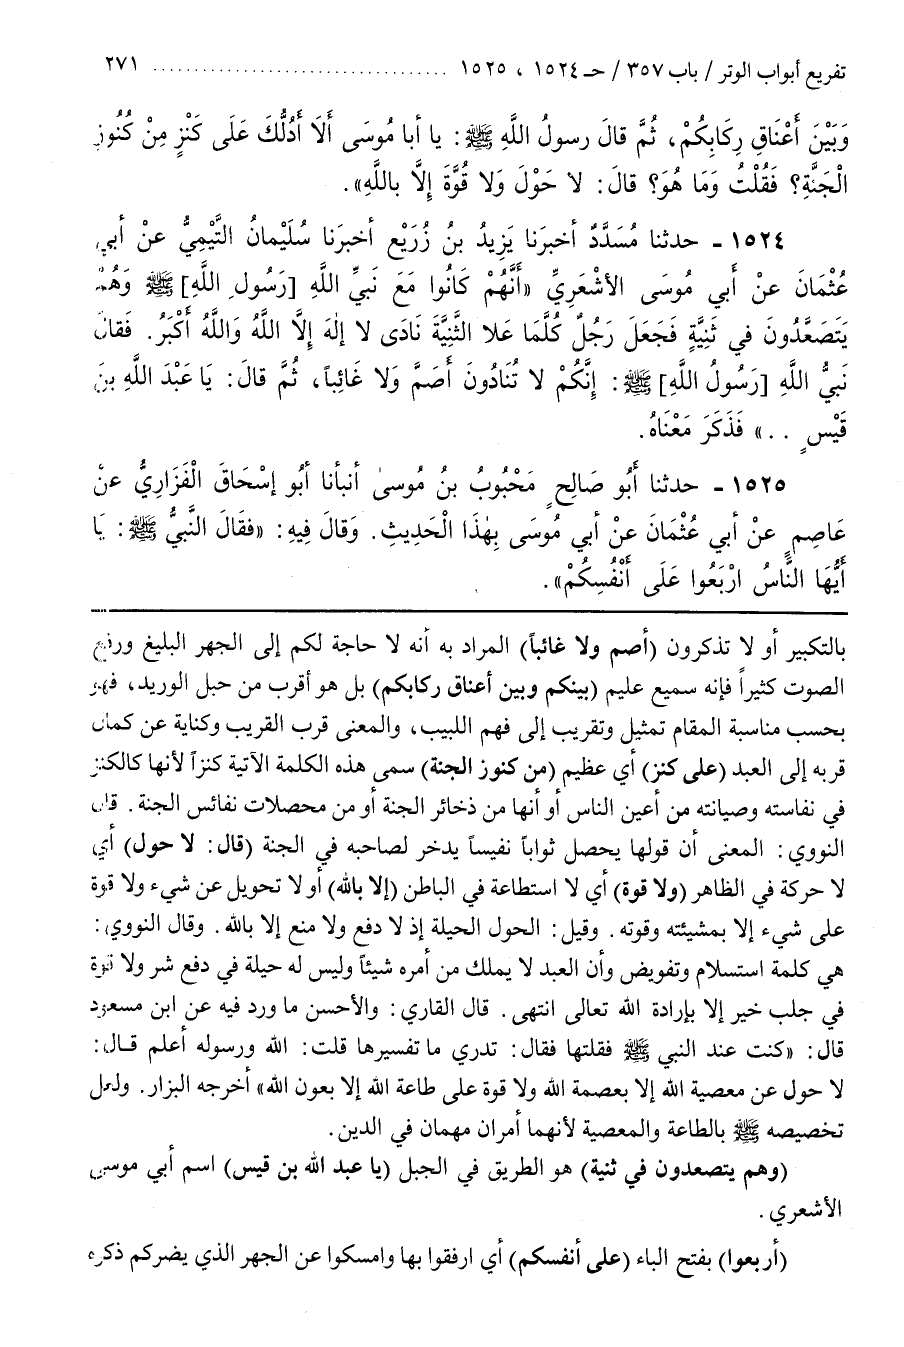 تفريع أبواب الوتر / باب ٣٥٧ / حـ ١٥٢٤ ، ١٥٢٥ .................................... ٢٧١
وَبَيْنَ أَعْنَاقِ رِكَابِكُمْ، ثُمَّ قالَ رسولُ اللَّهِ ﷺ: يا أبا مُوسَى أَلَا أَدُلُّكَ عَلَى كَنْزٍ مِنْ كُنُوزِ
الْجَنَّةِ؟ فَقُلْتُ وَمَا هُوَ؟ قالَ: لا حَوْلَ وَلا قُوَّةَ إلَّا باللَّهِ».
١٥٢٤ ـ حدثنا مُسَدَّدٌ أخبرَنا يَزِيدُ بنُ زُرَيْعٍ أخبرَنا سُلَيْمانُ التَّيْمِيُّ عنْ أبي
عُثْمَانَ عنْ أبي مُوسَى الأشْعَرِيِّ «أَنَّهُمْ كَانُوا مَعَ نَبيِّ اللَّهِ [رَسُولِ اللَّهِ] ﷺ وَهُمْ
يَتَصَعَّدُونَ في ثَنِيَّةٍ فَجَعَلَ رَجُلٌ كُلَّمَا عَلا الثَّنِيَّةَ نَادَى لا إلٰهَ إلَّا اللَّهُ وَاللَّهُ أَكْبَرُ. فَقالَ
نَبيُّ اللَّهِ [رَسُولُ اللَّهِ] ﷺ: إنَّكُمْ لا تُنَادُونَ أصَمَّ وَلا غَائِباً، ثُمَّ قالَ: يَا عَبْدَ اللَّهِ بنَ
قَيْسٍ . .» فَذَكَرَ مَعْنَاهُ.
١٥٢٥ ـ حدثنا أَبُو صَالِحٍ مَحْبُوبُ بنُ مُوسىٰ أنبأنا أبُو إسْحَاقَ الْفَزَارِيُّ عنْ
عَاصِمٍ عنْ أبي عُثْمَانَ عنْ أبي مُوسَى بِهٰذَا الْحَدِيثِ. وَقالَ فِيهِ: «فقَالَ النَّبيُّ ﷺ: يَا
أَيُّهَا النَّاسُ ارْبَعُوا عَلَى أَنْفُسِكُمْ».
بالتكبير أو لا تذكرون (أصم ولا غائباً) المراد به أنه لا حاجة لكم إلى الجهر البليغ ورفع
الصوت كثيراً فإنه سميع عليم (بينكم وبين أعناق ركابكم) بل هو أقرب من حبل الوريد، فهو
بحسب مناسبة المقام تمثيل وتقريب إلى فهم اللبيب، والمعنى قرب القريب وكناية عن كمال
قربه إلى العبد (على كنز) أي عظيم (من كنوز الجنة) سمى هذه الكلمة الآتية كنزاً لأنها كالكنز
في نفاسته وصيانته من أعين الناس أو أنها من ذخائر الجنة أو من محصلات نفائس الجنة. قال
النووي: المعنى أن قولها يحصل ثواباً نفيساً يدخر لصاحبه في الجنة (قال: لا حول) أي
لا حركة في الظاهر (ولا قوة) أي لا استطاعة في الباطن (إلا بالله) أو لا تحويل عن شيء ولا قوة
على شيء إلا بمشيئته وقوته. وقيل: الحول الحيلة إذ لا دفع ولا منع إلا بالله. وقال النووي:
هي كلمة استسلام وتفويض وأن العبد لا يملك من أمره شيئاً وليس له حيلة في دفع شر ولا قوة
في جلب خير إلا بإرادة الله تعالى انتهى. قال القاري: والأحسن ما ورد فيه عن ابن مسعود
قال: «كنت عند النبي ﷺ فقلتها فقال: تدري ما تفسيرها قلت: الله ورسوله أعلم قـال:
لا حول عن معصية الله إلا بعصمة الله ولا قوة على طاعة الله إلا بعون الله» أخرجه البزار. ولعل
تخصيصه ﷺ بالطاعة والمعصية لأنهما أمران مهمان في الدين.
(وهم يتصعدون في ثنية) هو الطريق في الجبل (يا عبد الله بن قيس) اسم أبي موسى
الأشعري.
(أربعوا) بفتح الباء (على أنفسكم) أي ارفقوا بها وامسكوا عن الجهر الذي يضركم ذكره